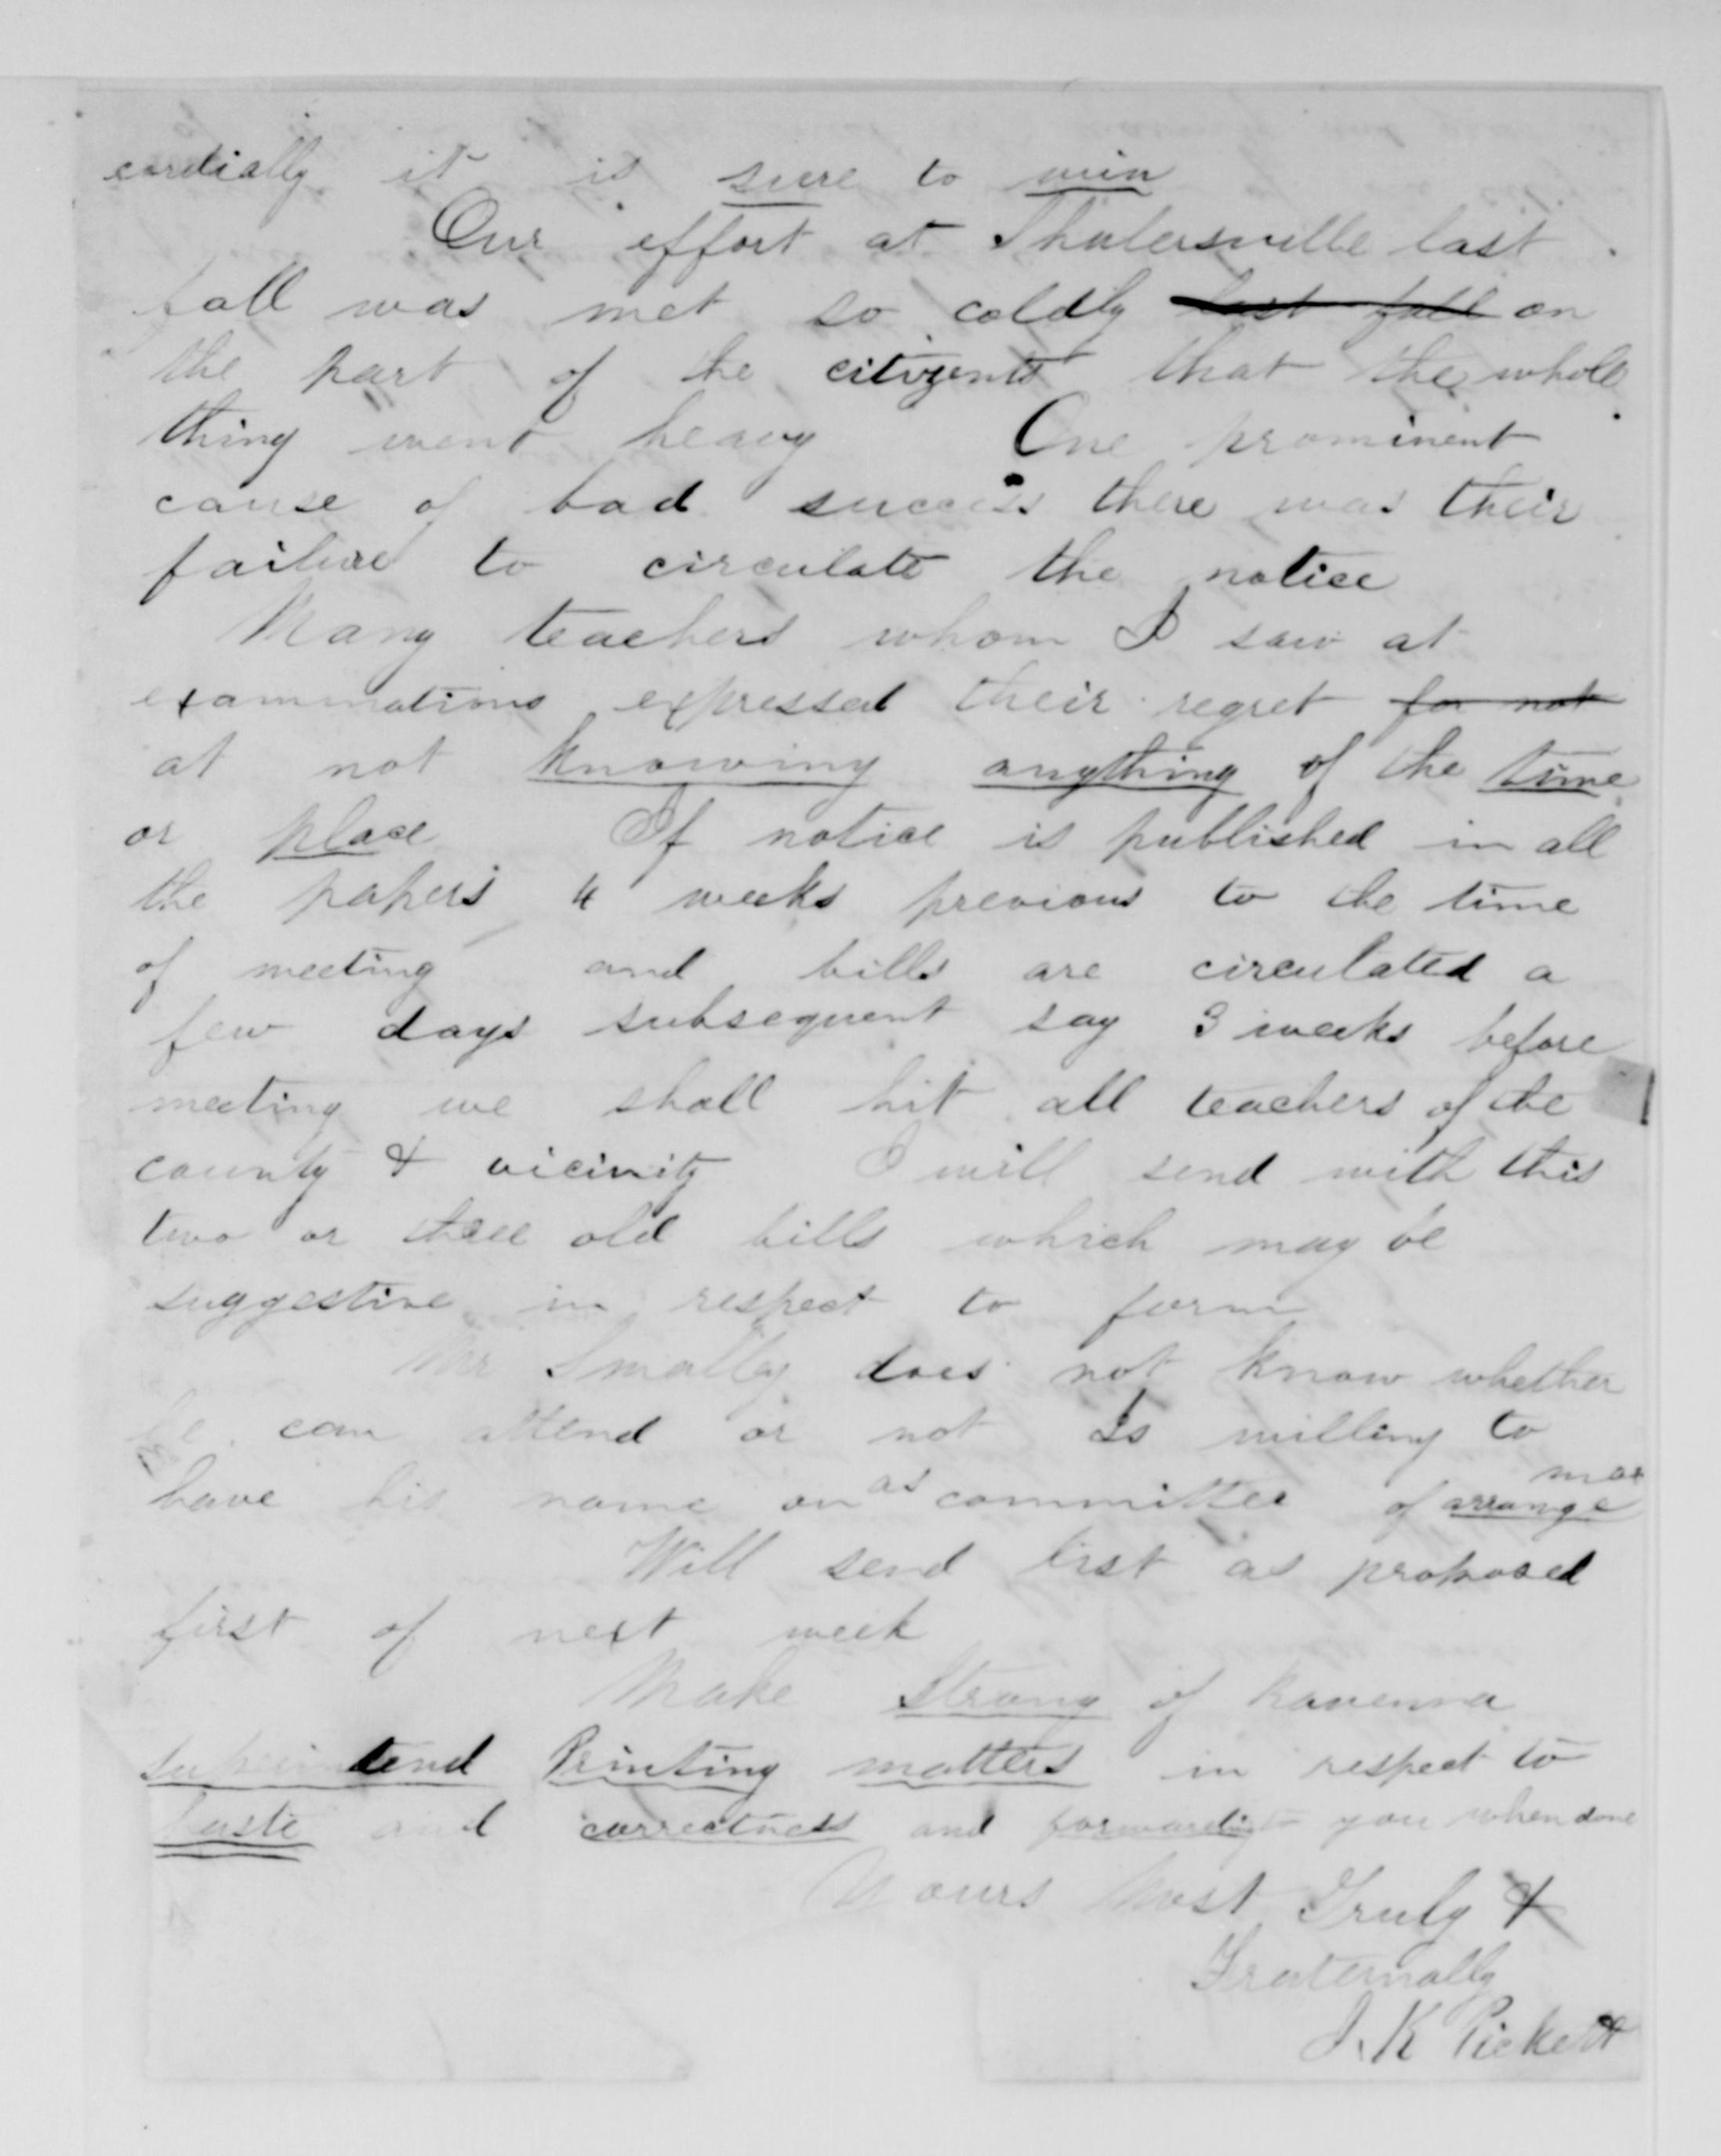 cordially it is sure to win
Our effort at Shalersville last
fall was met so coldly last fall on
the part of the citizents that the whole
thing went heavy One prominent
cause of bad success there was their
failure to circulate the notice
Many teachers whom I saw at
examinations expressed their regret for not
at not knowing anything of the time
or place If notice is published in all
the papers 4 weeks previous to the time
of meeting and bills are circulated a
few days subsequent say 3 weeks before
meeting we shall hit all teachers of the
county & vicinity I will send with this
two or three old bills which may be
suggestive in respect to form
Mr Smalley does not know whether
he can attend or not Is willing to
have his name on as committee of arrange
Will send list as proposed
first of next week
Make Strong of Ravenna
superintend Printing matters in respect to
haste and correctness and forwarding to you when done
Yours Most Truly &
Fraternally
J. K Pickett